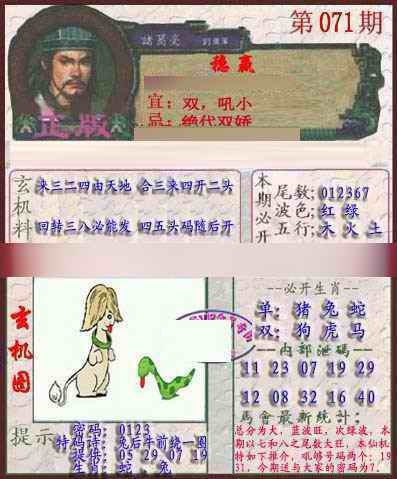 第071期
諸葛亮
稳赢
宜：双，吼小
忌：绝代双娇
正版
玄机料
来三二四由天地 合三来四开二头
回转三八必能发 四五头码随后开
本期必开
尾数：012367
波色：红 绿
五行：木 火 土
玄机图
--必开生肖--
单：猪 兔 蛇
双：狗 虎 马
--内部泄码--
11 23 07 19 29
12 08 32 16 40
馬會最新統計：
总分为大，蓝波旺，次绿波，本
期以七和八之尾数大旺，本仙机
特如下推介，吼够号码两个：19
31，今期送与大家的密码为7．
提示
密码：0123
特码诗：兔后牛前绕一圈
提供：05 29 07 19
生肖：蛇，兔